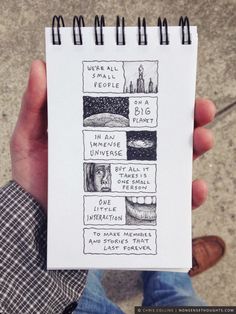 WE'RE ALL
SMALL
PEOPLE
ON A
BIG
PLANET
IN AN
IMMENSE
UNIVERSE
BUT ALL IT
TAKES IS
ONE SMALL
PERSON
ONE
LITTLE
INTERACTION
TO MAKE MEMORIES
AND STORIES THAT
LAST FOREVER
© CHRIS COLLINS | NONSENSETHOUGHTS.COM